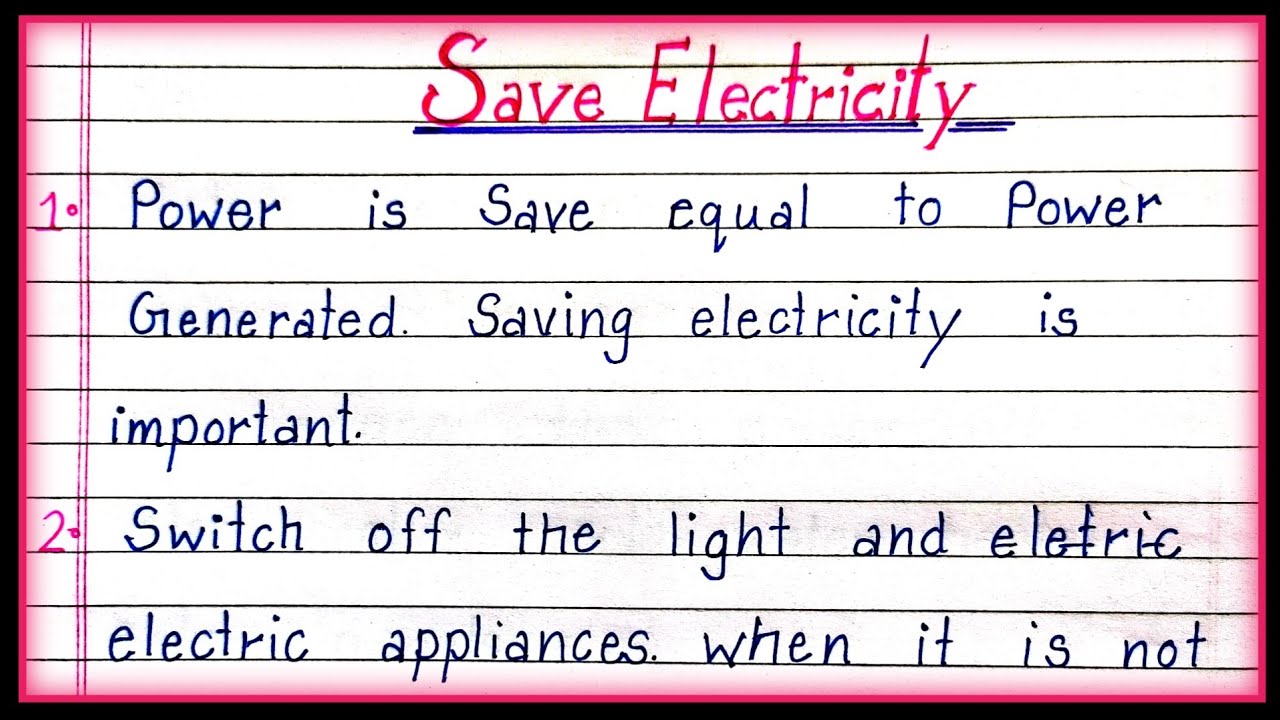 Save Electricity
1. Power is Save equal to Power
Generated. Saving electricity is
important.
2. Switch off the light and eletric
electric appliances. when it is not